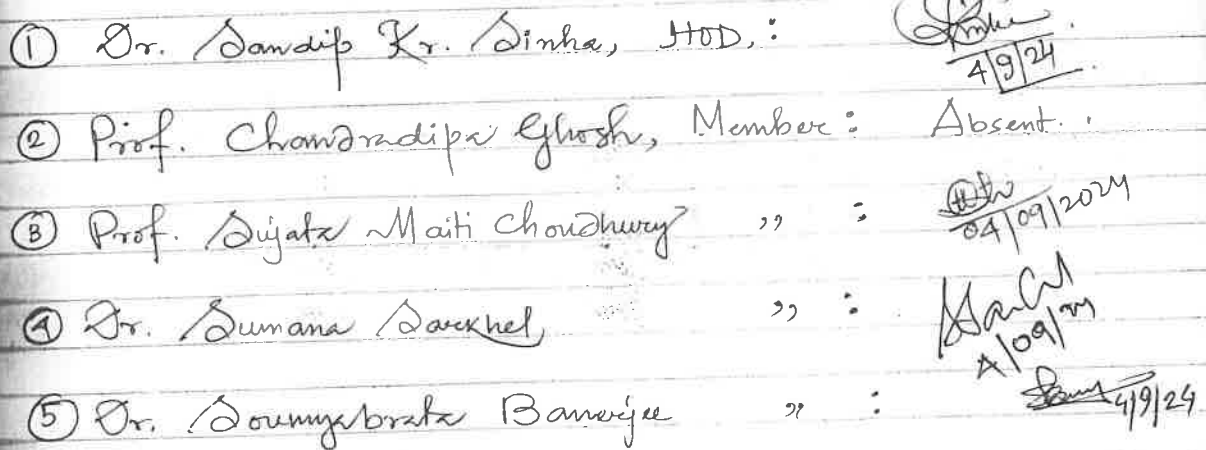 ① Dr. Sandip Kr. Sinha, HOD, :
4/9/24
② Prof. Chandradipa Ghosh, Member : Absent.
③ Prof. Sujata Maiti Choudhury ,, :
04/09/2024
④ Dr. Sumana Sarkhel ,, :
4/09/24
⑤ Dr. Soumyabrata Banerjee ,, : 4/9/24